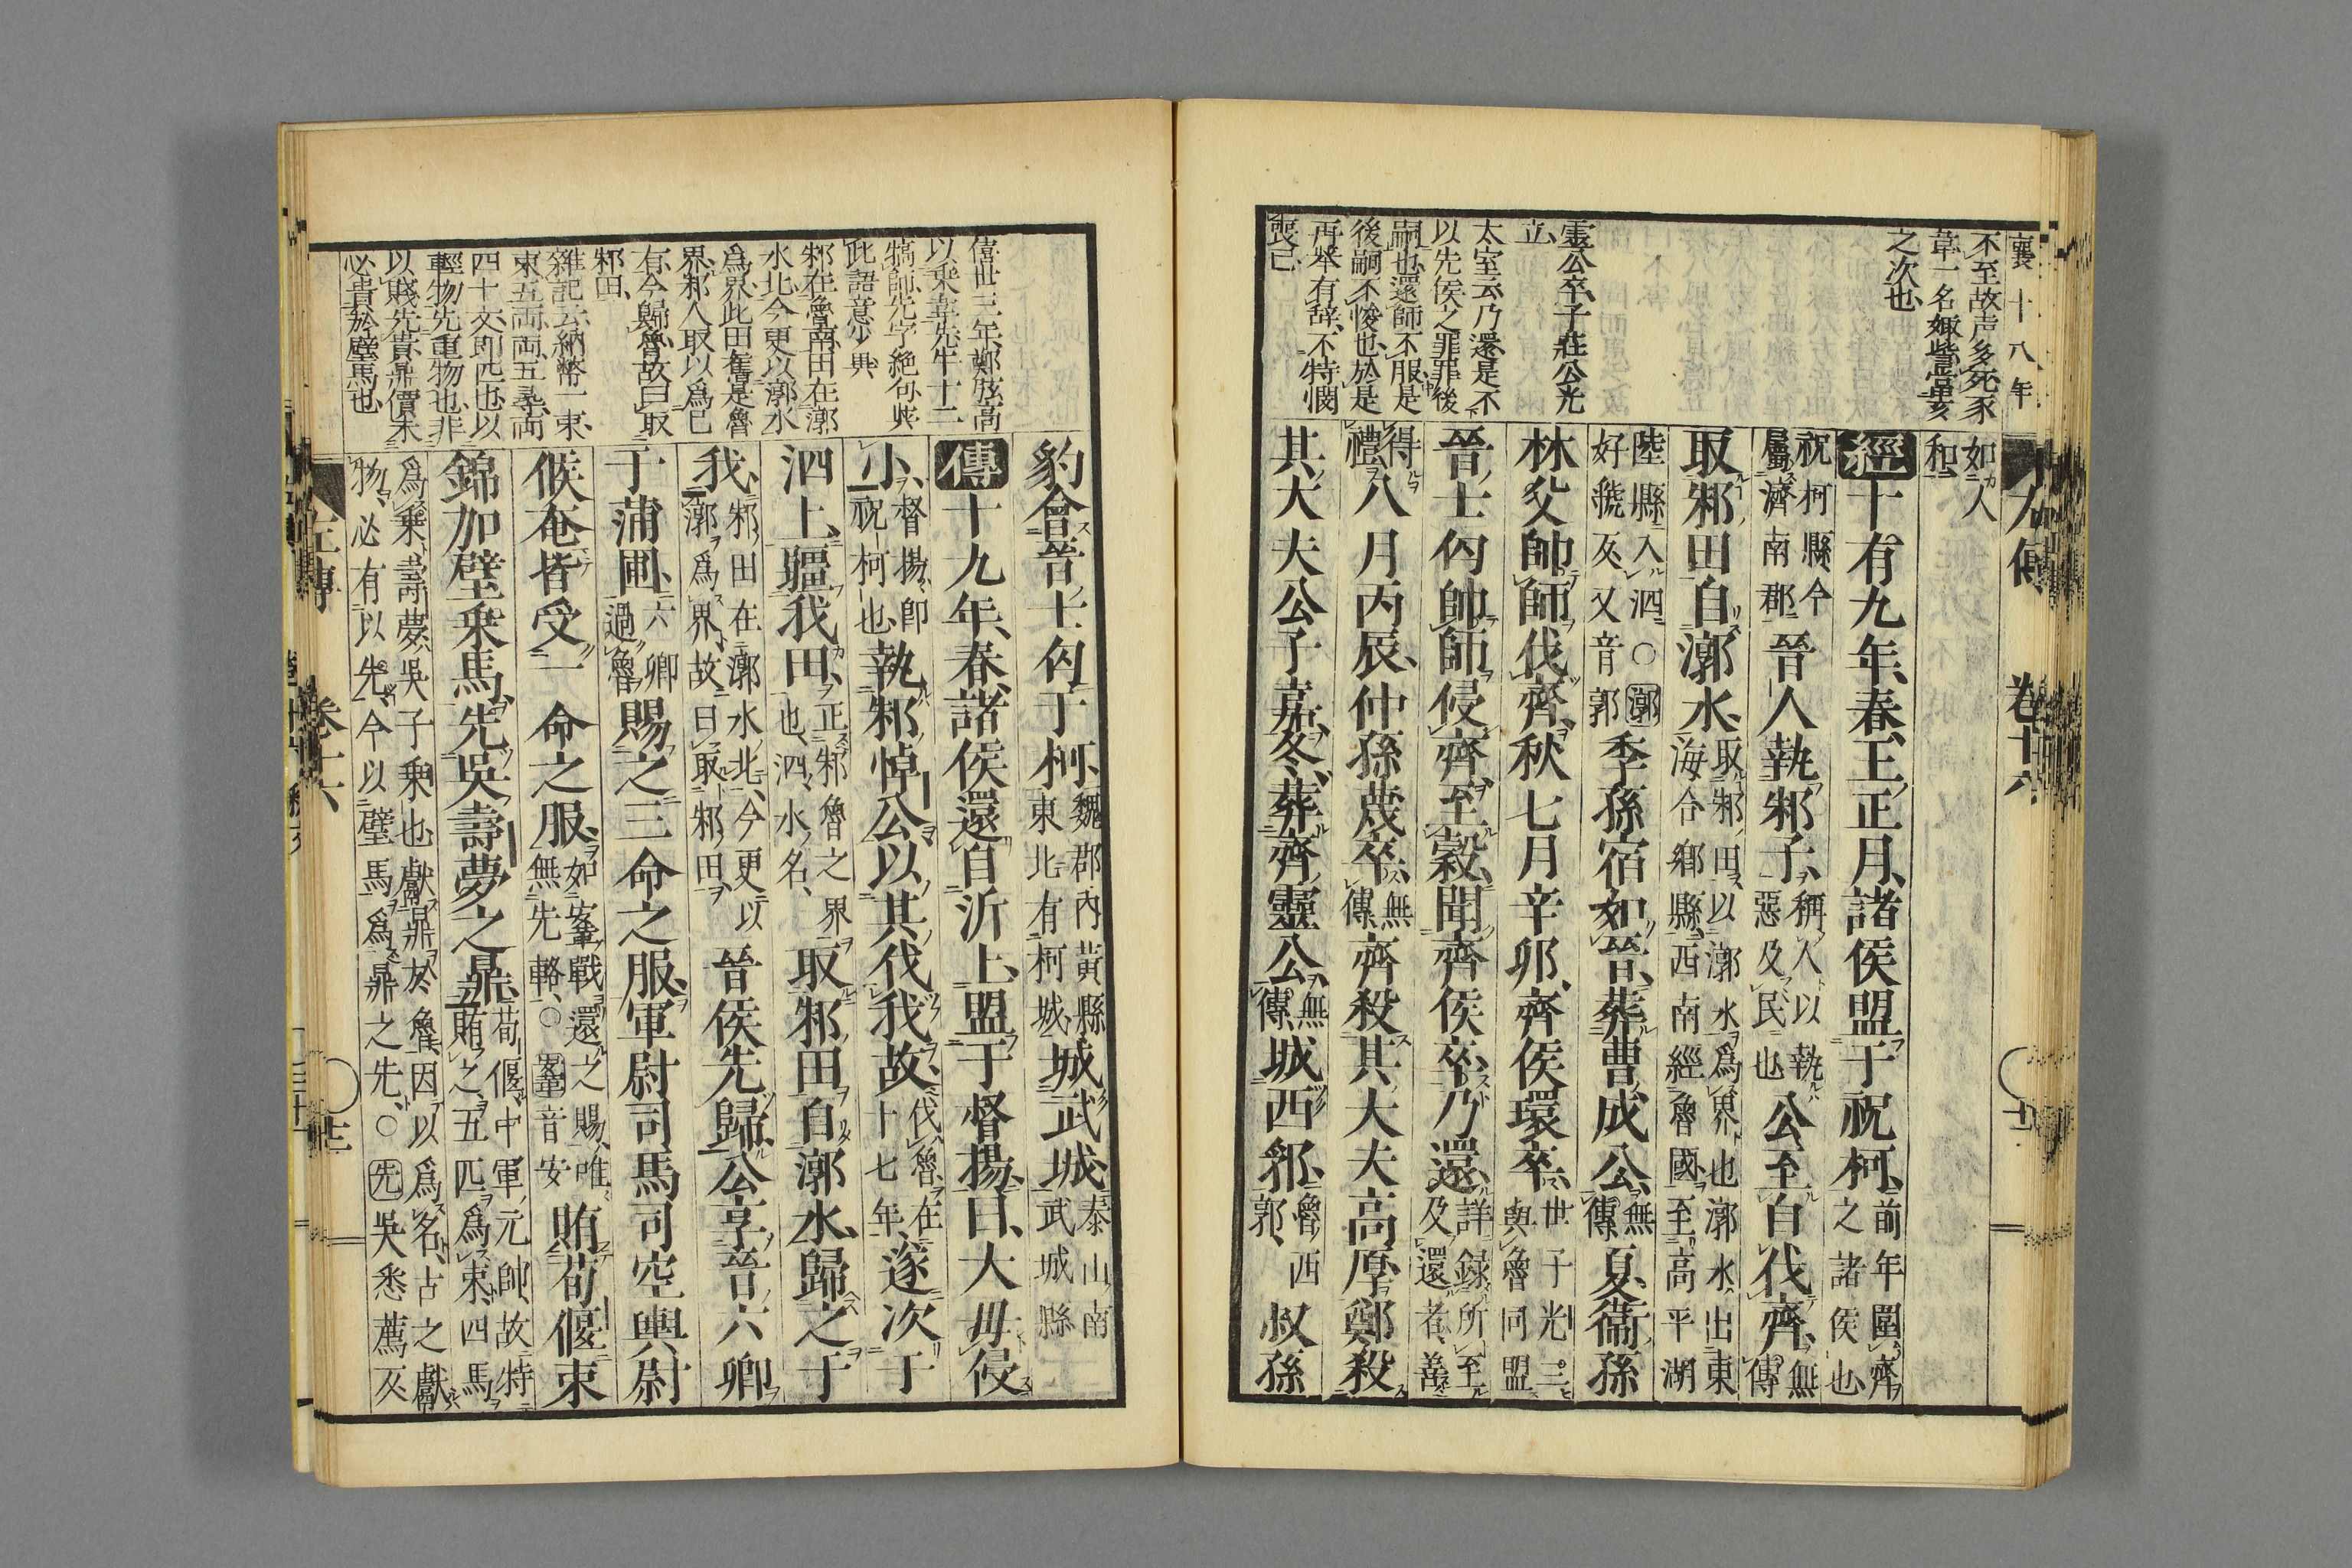 襄十八年
左傳 卷十六
不至故声多死永
之次也
如人
和
經十有九年春王正月諸侯盟于祝柯前年圍齊之諸侯也
祝柯縣今屬濟南郡晉人執邾子稱人以執惡及民也公至自伐齊無傳
取邾田自漷水取邾田以漷水爲界也漷水出東海合鄉縣西南經魯國至高平湖
陸縣入泗○漷好虢反又音郭季孫宿如晉葬曹成公無傳夏衞孫
林父帥師伐齊秋七月辛卯齊侯環卒世子光三與魯同盟
晉士匄帥師侵齊至穀聞齊侯卒乃還詳録所至及還者善
得禮八月丙辰仲孫蔑卒無傳齊殺其大夫高厚鄭殺
其大夫公子嘉冬葬齊靈公無傳城西郛魯西郭叔孫
霊公卒子荘公光
立
太室云乃還是不
以先侯之罪罪後
嗣也還師不服是
後嗣不悛也於是
再挙有辞不特憫
喪已
豹會晉士匄于柯魏郡內黃縣東北有柯城城武城泰山南武城縣
傳十九年春諸侯還自沂上盟于督揚曰大毋侵
小督揚即祝柯也執邾悼公以其伐我故伐魯在十七年遂次于
泗上疆我田正邾魯之界也泗水名取邾田自漷水歸之于
我邾田在漷水北今更以漷爲界故曰取邾田晉侯先歸公享晉六卿
于蒲圃六卿過魯賜之三命之服軍尉司馬司空輿尉
候奄皆受一命之服如鞌戰還之賜唯無先輅○鞌音安賄荀偃束
錦加璧乘馬先吳壽夢之鼎荀偃中軍元帥故特賄之五匹爲束四馬
爲乘壽夢吳子乘也獻鼎於魯因以爲名古之獻物必有以先今以璧馬爲鼎之先○先吳悉薦反
僖卅三年鄭弦高
以乗韋先牛十二
犒師先字絶句與
此語意少異
邾在魯南田在漷
水北今更以漷水
爲界此田舊是魯
界邾人取以爲已
有今歸魯故曰取
邾田
雜記云納幣一束
束五両両五尋両
四十文即匹也以
輕物先重物也非
以賤先貴鼎價未
必貴於璧馬也
左傳 卷十六